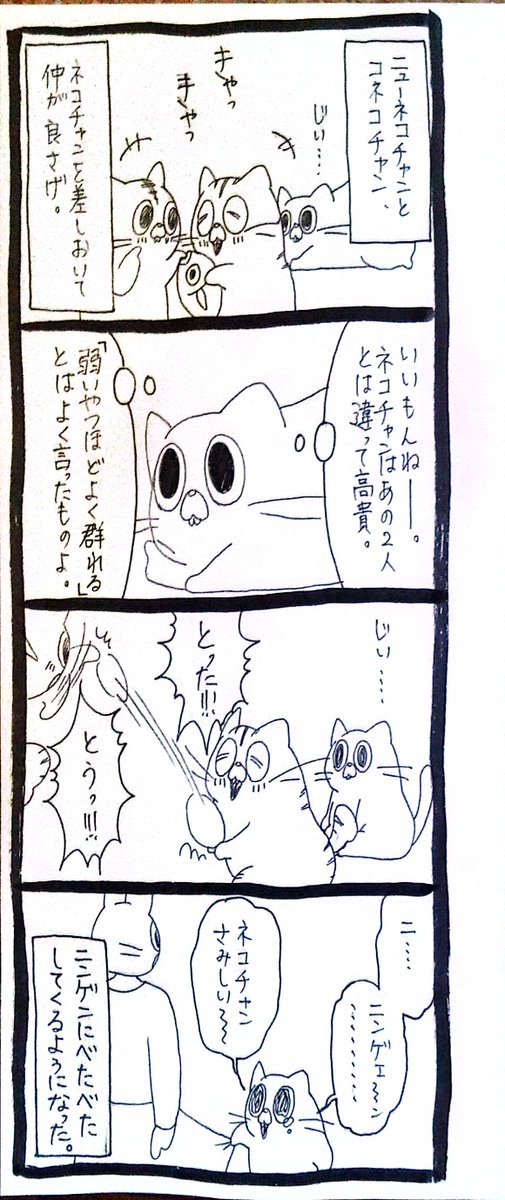 ニューネコチャンと
コネコチャン、
じい…
きゃっ
きゃっ
ネコチャンを差しおいて
仲が良さげ。
いいもんねー。
ネコチャンはあの2人
とは違って高貴。
「弱いやつほどよく群れる」
とはよく言ったものよ。
じい…
とった!!!
とうっ!!!
ニ…
ニンゲェ〜ン
………
ネコチャン
さみしい〜
ニンゲンにべたべた
してくるようになった。